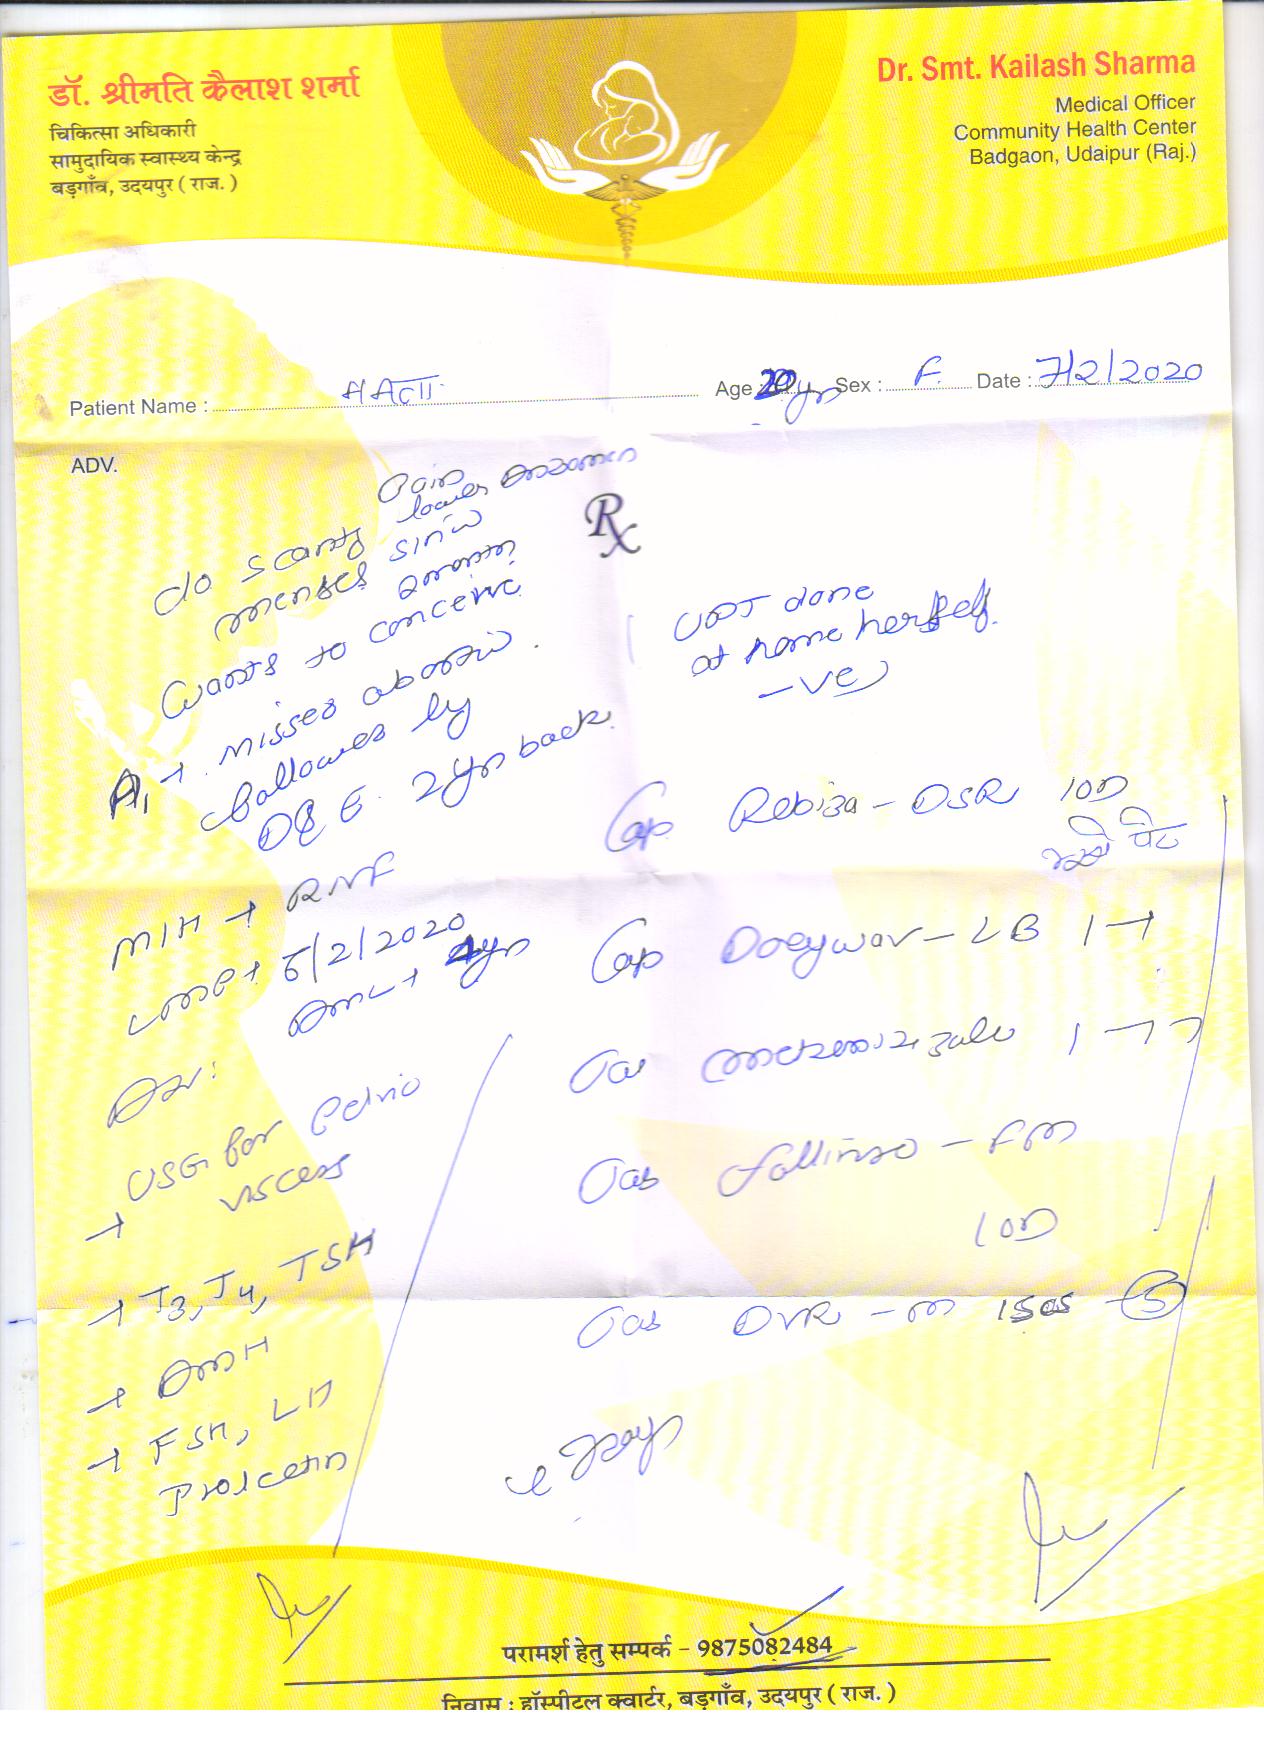 डॉ. श्रीमति कैलाश शर्मा
चिकित्सा अधिकारी
सामुदायिक स्वास्थ्य केन्द्र
बड़गाँव, उदयपुर ( राज. )
Dr. Smt. Kailash Sharma
Medical Officer
Community Health Center
Badgaon, Udaipur (Raj.)
Patient Name : ममता Age Sex : F. Date : 7/2/2020
ADV.
Pain
lower
c/o scanty
menses since
wants to conceive
A1 → missed
followed by
D& E. 2yr back.
M/H → RNF
LMP → 5/2/2020
Adv:
USG for Pelvic
viscera
→ T3, T4, TSH
→ AMH
→ FSH, LH
Prolactin
Rx
UPT done
at home herself.
-ve
Cap Rebiza - DSR 1OD
पेट
Cap - LB 1 -1
Tab 1 - 1 1
Tab - FM
1 OD
Tab DVR - M
परामर्श हेतु सम्पर्क - 9875082484
निवास : हॉस्पीटल क्वार्टर, बड़गाँव, उदयपुर ( राज. )